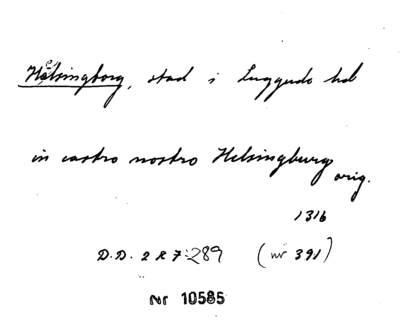 Hälsingborg, stad i Luggude hd
in castro nostro Helsingburg
orig.
1316
D.D. 2 R 7:289 (nr 391)
Nr 10585